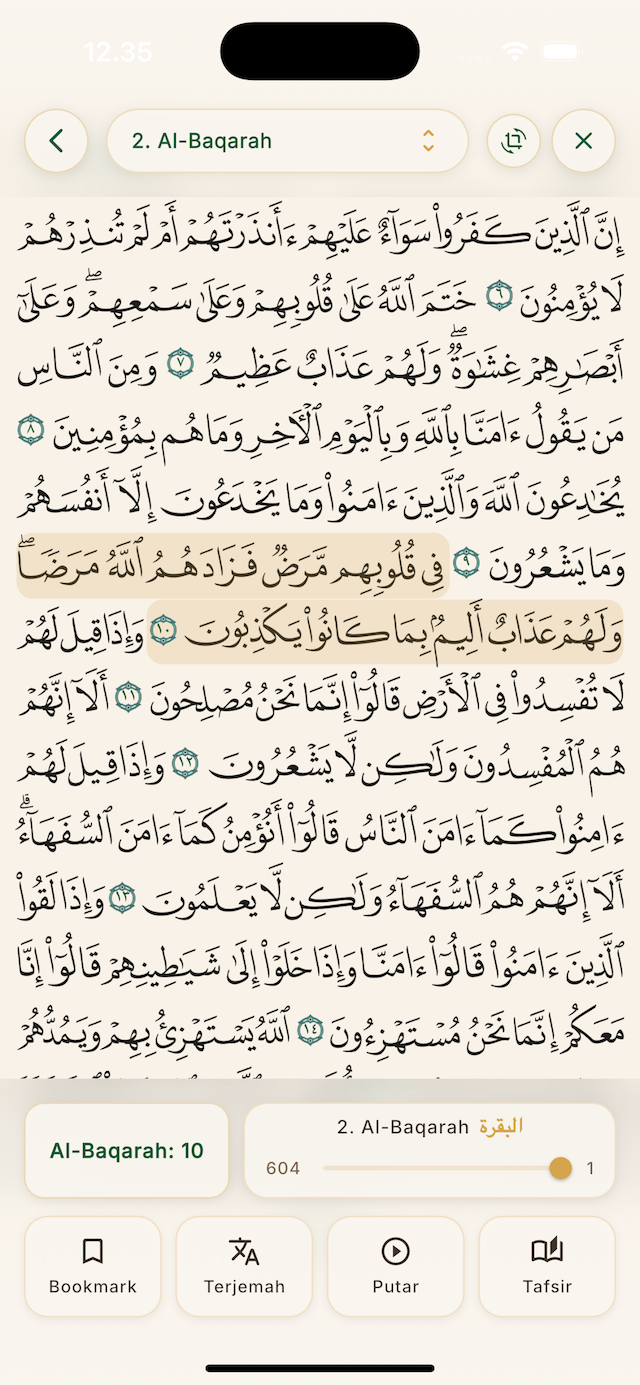 12.35
2. Al-Baqarah
إِنَّ ٱلَّذِينَ كَفَرُوا۟ سَوَآءٌ عَلَيْهِمْ ءَأَنذَرْتَهُمْ أَمْ لَمْ تُنذِرْهُمْ
لَا يُؤْمِنُونَ ٦ خَتَمَ ٱللَّهُ عَلَىٰ قُلُوبِهِمْ وَعَلَىٰ سَمْعِهِمْ ۖ وَعَلَىٰٓ
أَبْصَـٰرِهِمْ غِشَـٰوَةٌ ۖ وَلَهُمْ عَذَابٌ عَظِيمٌ ٧ وَمِنَ ٱلنَّاسِ
مَن يَقُولُ ءَامَنَّا بِٱللَّهِ وَبِٱلْيَوْمِ ٱلْـَٔاخِرِ وَمَا هُم بِمُؤْمِنِينَ ٨
يُخَـٰدِعُونَ ٱللَّهَ وَٱلَّذِينَ ءَامَنُوا۟ وَمَا يَخْدَعُونَ إِلَّآ أَنفُسَهُمْ
وَمَا يَشْعُرُونَ ٩ فِى قُلُوبِهِم مَّرَضٌ فَزَادَهُمُ ٱللَّهُ مَرَضًا ۖ
وَلَهُمْ عَذَابٌ أَلِيمٌۢ بِمَا كَانُوا۟ يَكْذِبُونَ ١٠ وَإِذَا قِيلَ لَهُمْ
لَا تُفْسِدُوا۟ فِى ٱلْأَرْضِ قَالُوٓا۟ إِنَّمَا نَحْنُ مُصْلِحُونَ ١١ أَلَآ إِنَّهُمْ
هُمُ ٱلْمُفْسِدُونَ وَلَـٰكِن لَّا يَشْعُرُونَ ١٢ وَإِذَا قِيلَ لَهُمْ
ءَامِنُوا۟ كَمَآ ءَامَنَ ٱلنَّاسُ قَالُوٓا۟ أَنُؤْمِنُ كَمَآ ءَامَنَ ٱلسُّفَهَآءُ ۗ
أَلَآ إِنَّهُمْ هُمُ ٱلسُّفَهَآءُ وَلَـٰكِن لَّا يَعْلَمُونَ ١٣ وَإِذَا لَقُوا۟
ٱلَّذِينَ ءَامَنُوا۟ قَالُوٓا۟ ءَامَنَّا وَإِذَا خَلَوْا۟ إِلَىٰ شَيَـٰطِينِهِمْ قَالُوٓا۟ إِنَّا
مَعَكُمْ إِنَّمَا نَحْنُ مُسْتَهْزِءُونَ ١٤ ٱللَّهُ يَسْتَهْزِئُ بِهِمْ وَيَمُدُّهُمْ
Al-Baqarah: 10
2. Al-Baqarah البقرة
604 1
Bookmark
Terjemah
Putar
Tafsir